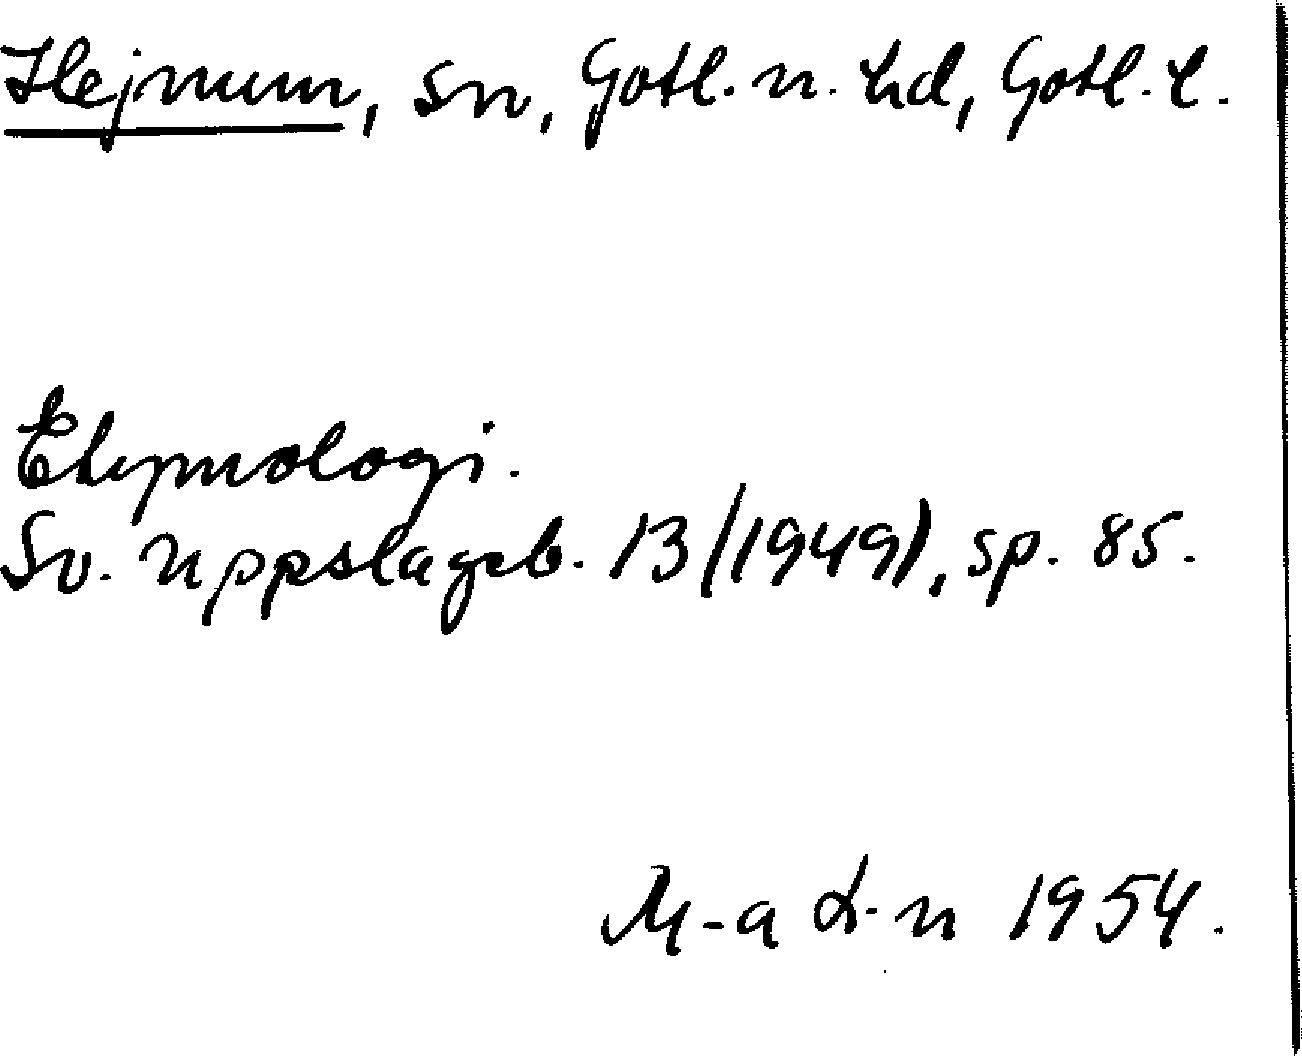 Hejnum, sn, Gotl. n. hd, Gotl. l.
Etymologi.
Sv. Uppslagsb. 13 (1949), sp. 85.
M-a L-n 1954.